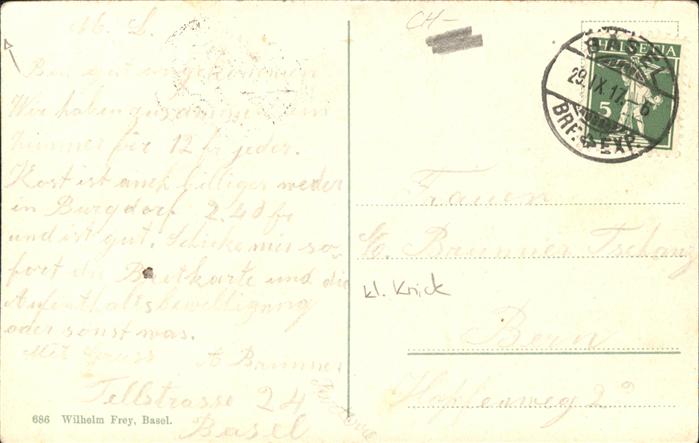 M. L.
Bin gut angekommen
Wir haben zusammen ein
Zimmer für 12 fr jeder.
Kost ist auch billiger weder
in Burgdorf 2.40 fr
und ist gut. Schicke mir so-
fort die Brotkarte und die
Aufenthaltsbewilligung
oder sonst was.
Mit Gruss A Brunner
Tellstrasse 24
Basel
686 Wilhelm Frey, Basel.
CH-
HELVETIA
5
BASEL
29.IX.17.-6
BRF. EXP.
Frauen
Brunner Tschanz
kl. Knick
Bern
Hopfenweg 29